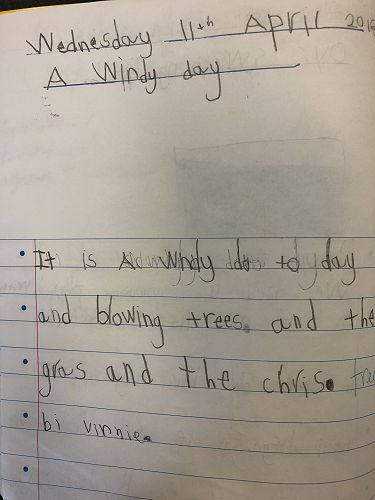 Wednesday 11th April 2018
A Windy day
It is A Windy to day
and blowing trees. and the
gras and the chris.
bi vinnie.